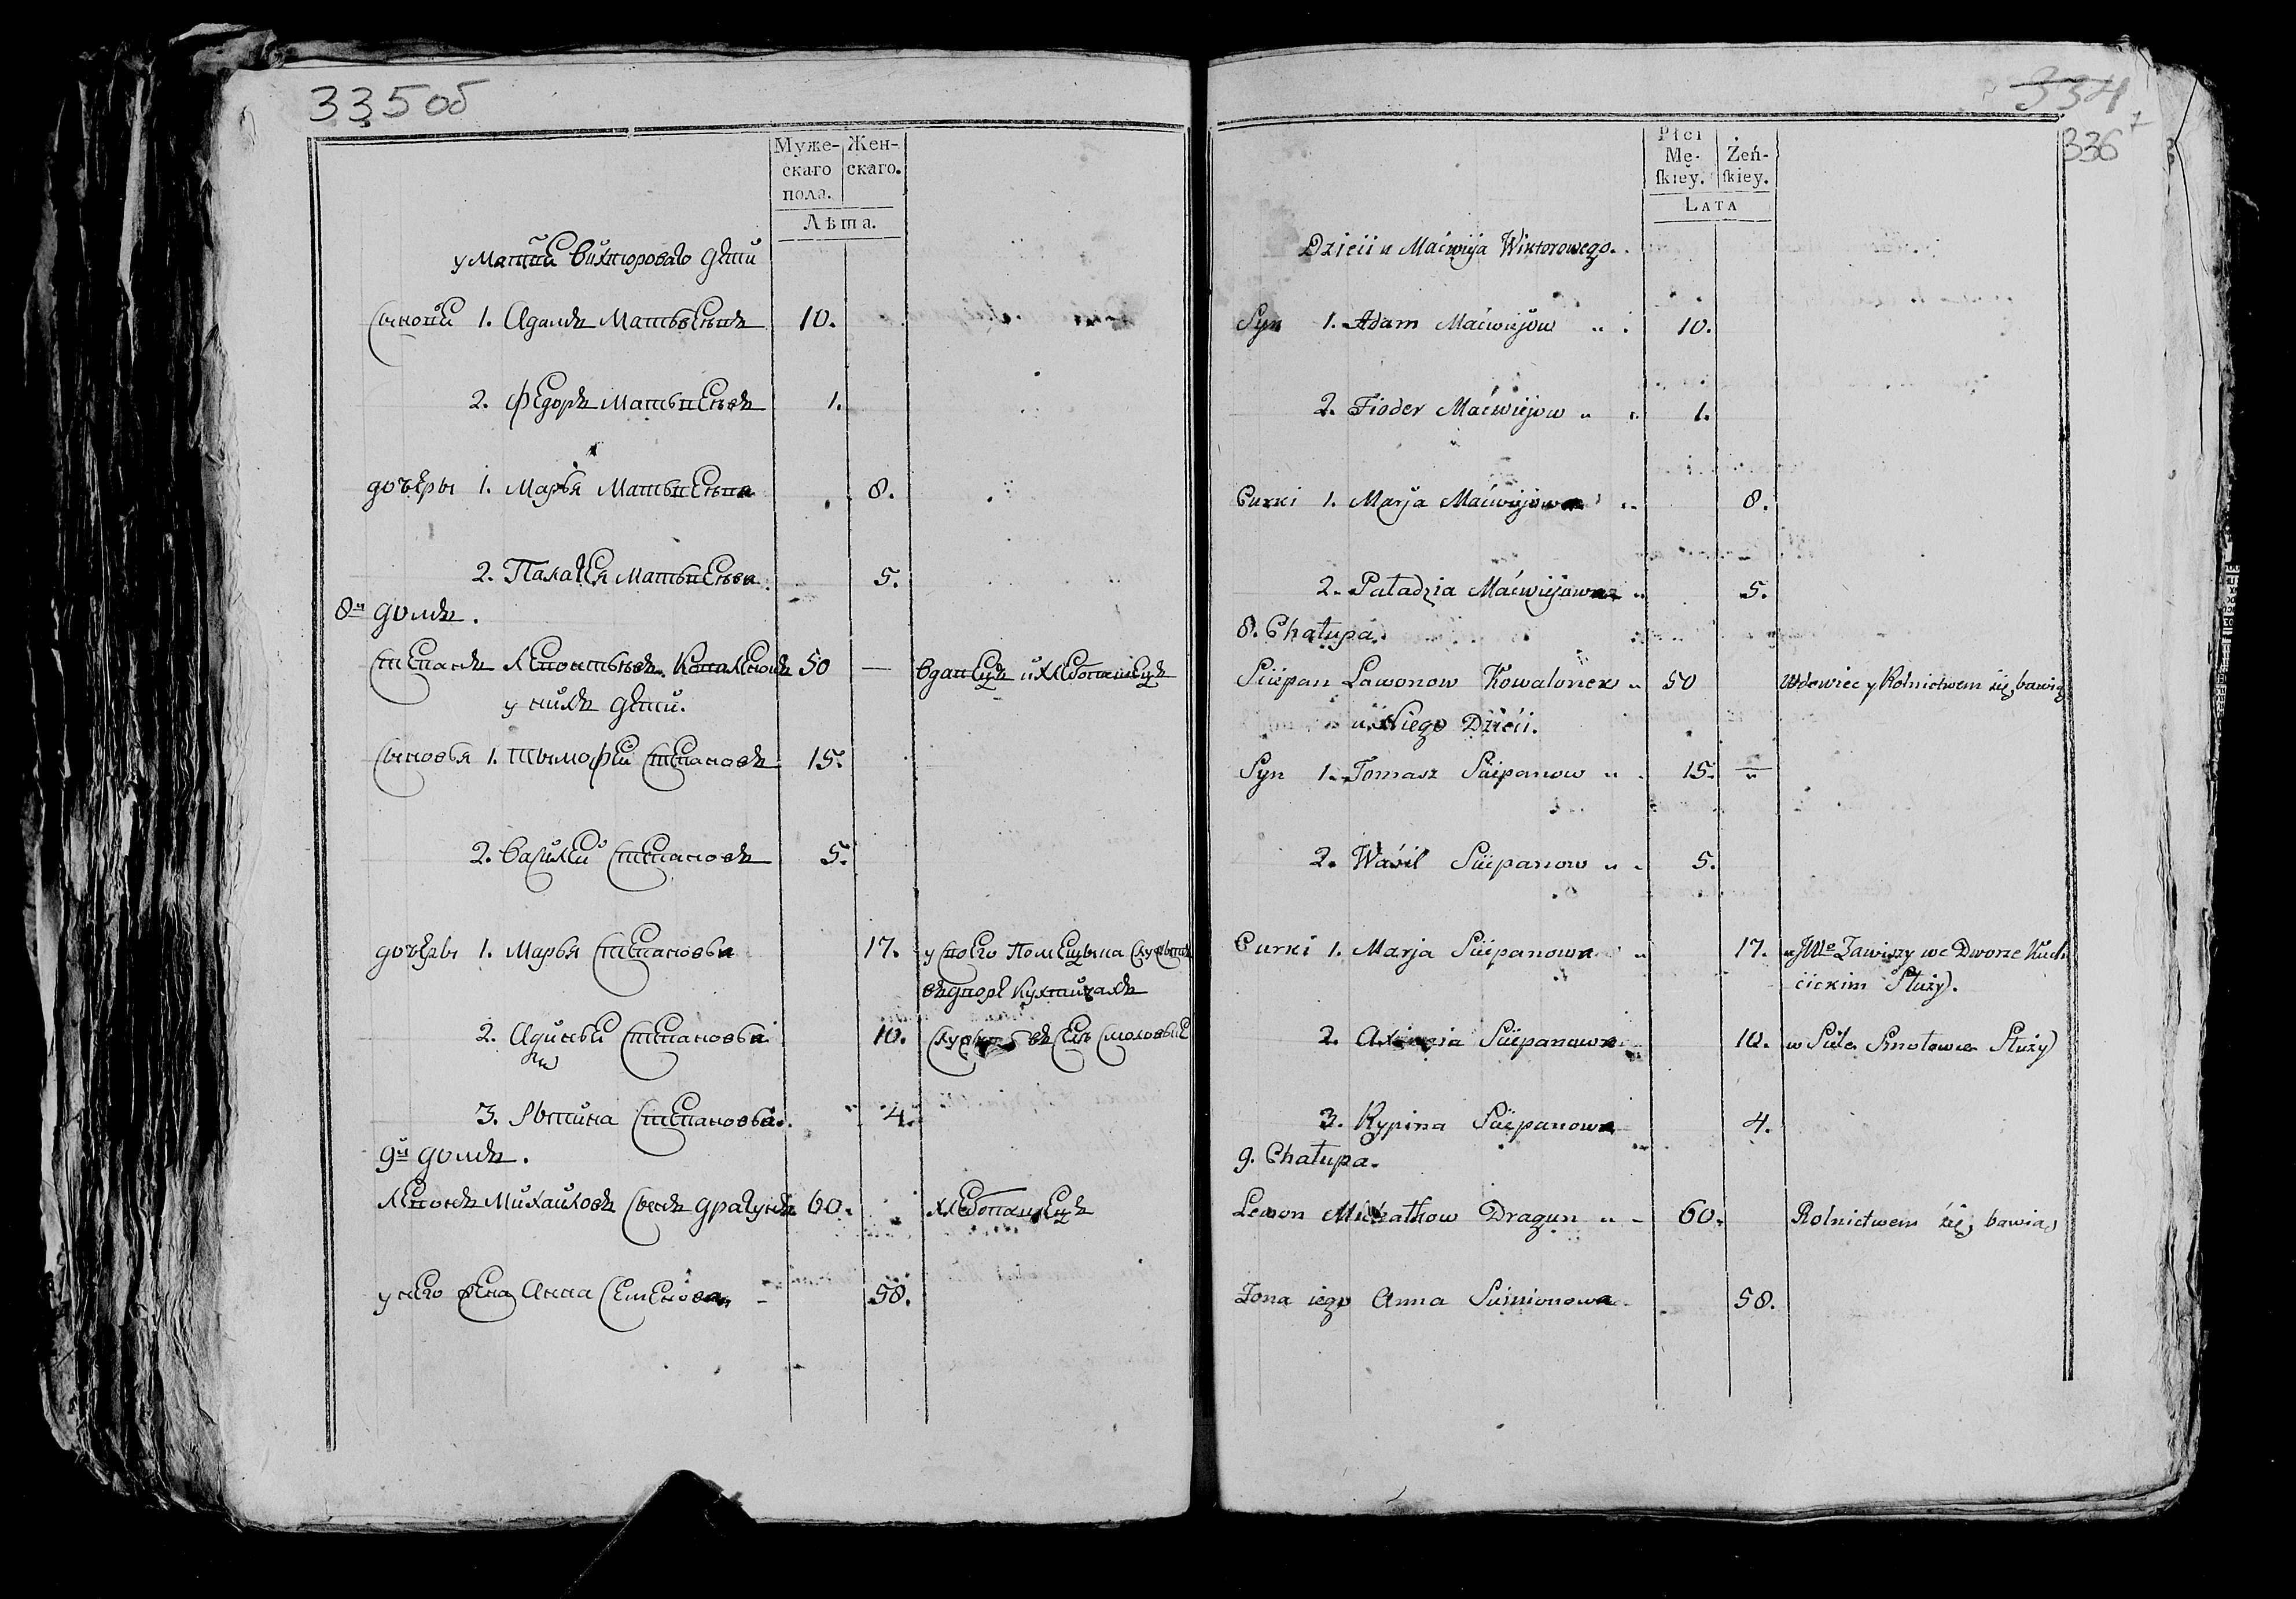 335об
Муже-
скаго
пола.
Жен-
скаго.
Лѣта.
у Матвѣи Вихтороваго дѣти
Сыновей 1. Адамъ Матвѣевъ 10.
2. Федоръ Матвѣевъ 1.
дочери 1. Марья Матвѣева 8.
2. Палагея Матвѣева 5.
8й домъ.
Степанъ Левонтьевъ Ковалёнокъ 50 — вдавецъ и хлебопашецъ
у нихъ дѣти.
Сыновья 1. Тымофей Степановъ 15.
2. Василей Степановъ 5.
дочеры 1. Марья Степановъа 17. у своего Помещыка Служытъ
въ дворе Кухтичахъ
2. Степановъа 10. Служытъ въ Селе
3. Степановъа. 4.
9й домъ.
Левонъ Михайловъ Сынъ драгунъ 60. хлебопашецъ
у него жена Анна Семенова 58.
334
336
Płci
Mę-
ſkiey.
Żeń-
ſkiey.
LATA
Dzieci u Maćwija Wiktorowego.
Syn 1. Adam Maćwiejow 10.
2. Fiodor Maćwiejow 1.
Curki 1. Marja Maćwiejowa 8.
2. Paładzia Maćwiejowna 5.
8. Chałupa.
Sciepan Lawonow Kowalonek 50 Wdowiec y Rolnictwem się bawią
u Niego Dzieci.
Syn 1. Tomasz Sciepanow 15. —
2. Waśil Sciepanow 5.
Curki 1. Marja Sciepanowa 17. u JWo Zawiszy we Dworze Kuch
cickim Służy.
2. Sciepanowa 10. w Siele Smołowce Służy
3. Rypina Sciepanowa 4.
9. Chałupa.
Lewon Michałkow Dragun 60. Rolnictwem się bawią
Żona iego Anna Siemionowa 58.